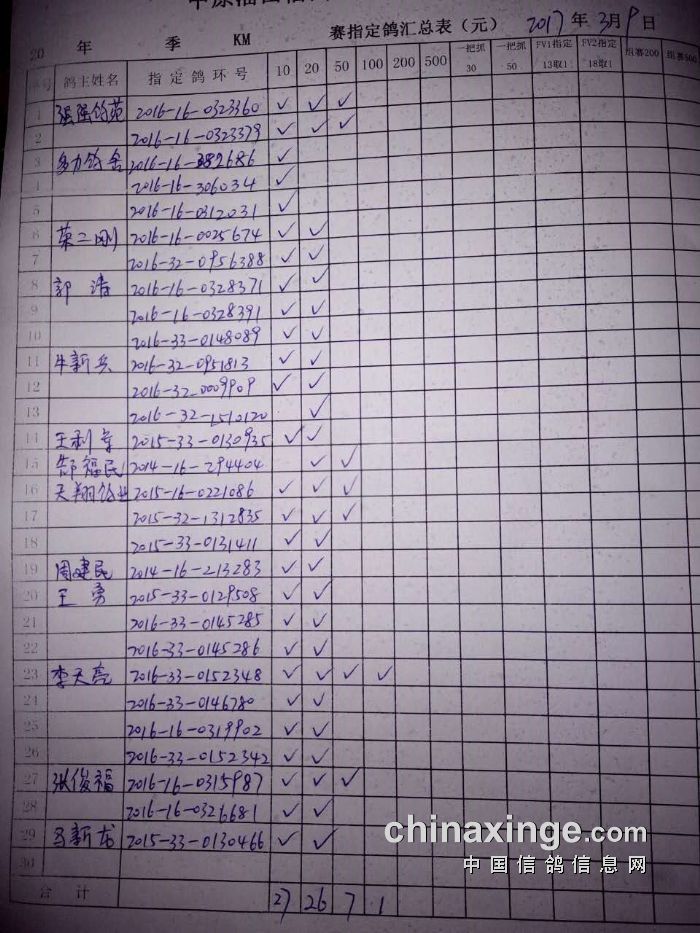 20 年 季 KM 赛指定鸽汇总表（元） 2017年3月9日
序号 鸽主姓名 指定鸽环号 10 20 50 100 200 500 一把抓30 一把抓50 FV1指定13取1 FV2指定18取1 组赛200 组赛500
1 强强鸽苑 2016-16-0323360 ✓ ✓ ✓
2 2016-16-0323379 ✓ ✓ ✓
3 多力鸽舍 2016-16-382686 ✓
4 2016-16-306034 ✓
5 2016-16-0312031 ✓
6 荣二刚 2016-16-0025674 ✓ ✓
7 2016-32-0956388 ✓ ✓
8 郭清 2016-16-0328371 ✓ ✓
9 2016-16-0328391 ✓ ✓
10 2016-33-0148089 ✓ ✓
11 牛新兵 2016-32-0951813 ✓ ✓
12 2016-32-0009909 ✓ ✓
13 2016-32-1510120 ✓
14 王利军 2015-33-0130935 ✓ ✓
15 郜福民 2014-16-294404 ✓ ✓
16 天翔鸽业 2015-16-0221086 ✓ ✓ ✓
17 2015-32-1312835 ✓ ✓ ✓
18 2015-33-0131411 ✓ ✓
19 周建民 2014-16-213283 ✓ ✓
20 王勇 2015-33-0129508 ✓ ✓
21 2016-33-0145285 ✓ ✓
22 2016-33-0145286 ✓ ✓
23 李天亮 2016-33-0152348 ✓ ✓ ✓ ✓
24 2016-33-0146780 ✓ ✓
25 2016-16-0319902 ✓ ✓
26 2016-33-0152342 ✓ ✓
27 张俊福 2016-16-0315987 ✓ ✓ ✓
28 2016-16-0326681 ✓ ✓
29 新龙 2015-33-0130466 ✓ ✓
30
合计 27 26 7 1
chinaxinge.com
中国信鸽信息网